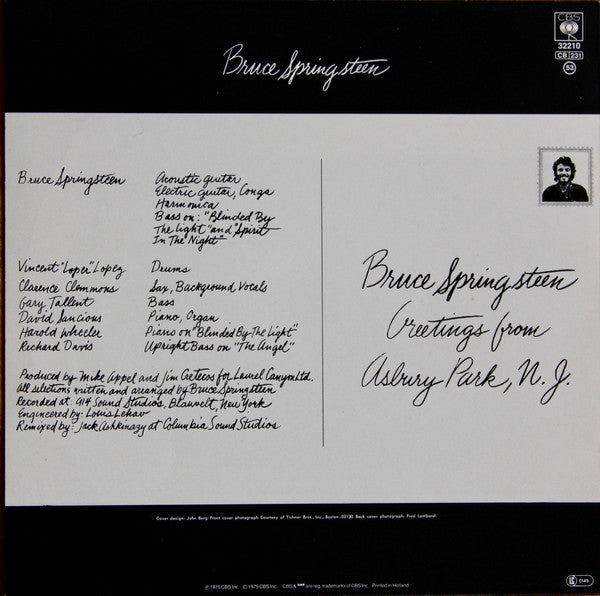 Bruce Springsteen
CBS
32210
CB 231
53
Bruce Springsteen Acoustic guitar
Electric guitar, Conga
Harmonica
Bass on: "Blinded By
The Light" and "Spirit
In The Night"
Vincent "Loper" Lopez Drums
Clarence Clemmons Sax, Background Vocals
Gary Tallent Bass
David Sancious Piano, Organ
Harold Wheeler Piano on "Blinded By The Light"
Richard Davis Upright Bass on "The Angel"
Produced by Mike Appel and Jim Cretecos for Laurel Canyon Ltd.
All selections written and arranged by Bruce Springsteen
Recorded at: 914 Sound Studios, Blauvelt, New York
Engineered by: Louis Lehav
Remixed by: Jack Ashkinazy at Columbia Sound Studios
Bruce Springsteen
Greetings from
Asbury Park, N.J.
Cover design: John Berg/Front cover photograph Courtesy of Tichnor Bros., Inc., Boston -02130 Back cover photograph: Fred Lombardi
℗ 1975 CBS Inc. © 1975 CBS Inc. CBS & are reg. trademarks of CBS Inc. Printed in Holland